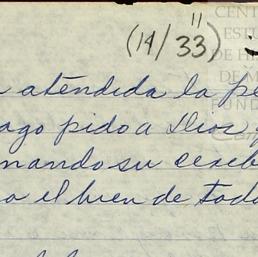 (14/33)
"
CENT
ESTU
DE HI
DE M
FUND
atendida la pe
ago pido a Dios
nando su cereb
o el bien de toda